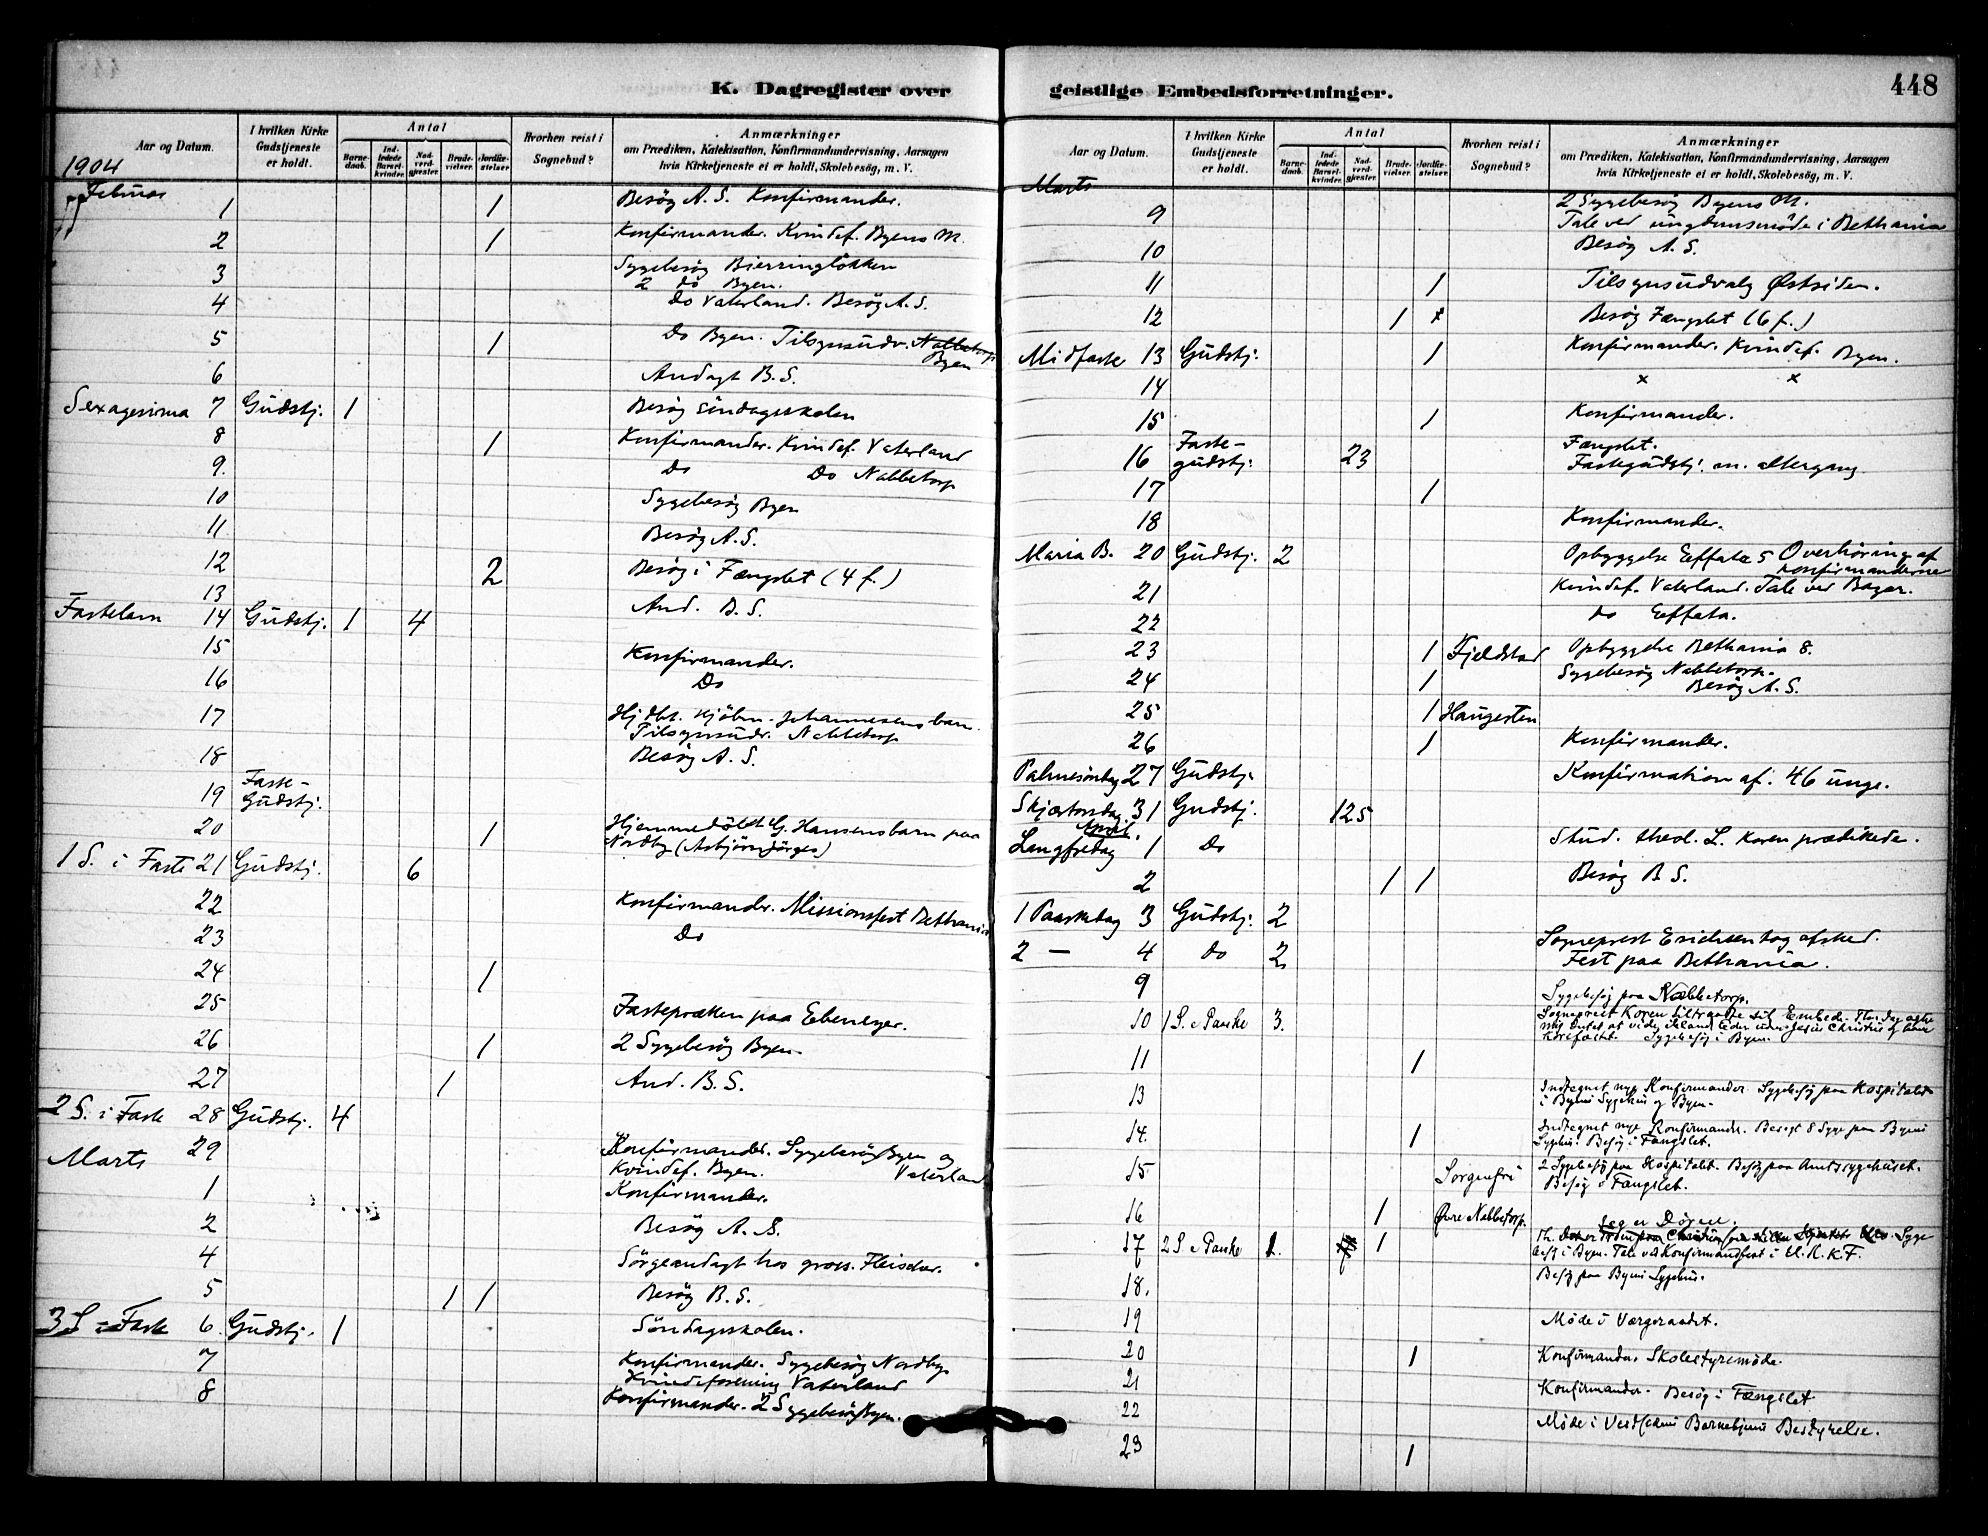 448
K. Dagregister over
Aar og Datum.
I hvilken Kirke Gudstjeneste er holdt.
Antal
Barne- daab.
Ind- ledede Barsel- kvinder.
Nad- verd- gjester.
Brude- vielser.
Jordfæ- stelser.
Hvorhen reist i Sognebud?
Anmærkninger
om Prædiken, Katekisation, Konfirmandundervisning, Aarsagen
hvis Kirketjeneste ei er holdt, Skolebesög, m. V.
1904
Februar
1 1 Besög A. S. Konfirmander.
2 1 Konfirmander. Kvindef. Byens M.
3 Sygebesög Bjerringløkken
2 do Byen.
4 Do Vaterland. Besög A. S.
5 1 Do Byen. Tilsynsudv. Nabbetorp
Byen
6 Andagt B. S.
Sexagesima 7 Gudstj. 1 Besög söndagsskolen
8 1 Konfirmander. Kvindef. Vaterland
9. Do Do Nabbetorp
10 Sygebesög Byen
11 Besög A. S.
12 2 Besög i Fængslet (4 f.)
13 And. B. S.
Fastelavn 14 Gudstj. 1 4
15 Konfirmander.
16 Do
17 Hj. dbt. Kjöbm. Johannesens barn.
Tilsynsudv. Nabbetorp
18 Besög A. S.
19 Faste-
Gudstj.
20 1 Hjemmedöbt G. Hansens barn paa
Nordby
1 S. i Faste 21 Gudstj. 6
22 Konfirmander. Missionsfest Bethania
23 Do
24 1
25 Fastepræken paa Ebenezer.
26 1 2 Sygebesög Byen.
27 1 And. B. S.
2 S. i Faste 28 Gudstj. 4
29 Konfirmander. Sygebesög Byen og
Kvindef. Byen. Vaterland
Marts
1 Konfirmander.
2 Besög A. S.
4 Sörgeandagt hos gross.
5 1 1 Besög B. S.
3 S i Faste 6. Gudstj. 1 Söndagsskolen.
7 Konfirmander. Sygebesög Nordby
Kvindeforening Vaterland
8 Konfirmander. 2 Sygebesög Byen.
geistlige Embedsforretninger.
Aar og Datum.
I hvilken Kirke Gudstjeneste er holdt.
Antal
Barne- daab.
Ind- ledede Barsel- kvinder.
Nad- verd- gjæster.
Brude- vielser.
Jordfæ- stelser.
Hvorhen reist i Sognebud?
Anmærkninger
om Prædiken, Katekisation, Konfirmandundervisning, Aarsagen
hvis Kirketjeneste ei er holdt, Skolebesög, m. V.
Marts
9 2 Sygebesög Byens M.
Tale ved ungdomsmöde i Bethania
10 Besög A. S.
11 1 Tilsynsudvalg Østsiden.
12 1 x Besög Fængslet (6 f.)
Midfaste 13 Gudstj. 1 Konfirmander. Kvindef. Byen.
14 x x
15 1 Konfirmander.
16 Faste-
gudstj. 23 Fængslet.
Fastegudstj. m. altergang
17 1
18 Konfirmander.
Maria B. 20 Gudstj. 2 Opbyggelse Effata 5 Overhöring af
konfirmanderne
21 Kvindef. Vaterland. Tale ved Bazar.
22 do Effata.
23 1 Fjeldstad Opbyggelse Bethania 8.
24 1 Sygebesög Nabbetorp.
Besög A. S.
25 1 Haugesten
26 1 Konfirmander.
Palmesöndag 27 Gudstj. Konfirmation af 46 unge.
Skjærtorsdag 31 Gudstj. 125
April.
Langfredag 1 Do Stud. theol. L. Koren prædikede.
2 1 1 Besög B S.
1 Paaskedag 3 Gudstj. 2
2 — 4 do 2 Sogneprest Erichsen tog afsked.
Fest paa Bethania.
9 Sygebesög paa Nabbetorp.
10 1 S. e Paaske 3. Sogneprest Koren tiltraadte sit Embede.
korsfæstet. Sygebesög i Byen.
11 1
13 Indtegnet nye Konfirmander. Sygebesög paa Hospitalet
i Byens Sygehus og Byen.
14. 1 Indtegnet nye Konfirmander. Besøgt 8 Syge paa Byens
Sygehus. Besög i Fængslet.
15 Sorgenfri 2 Sygebesög paa Hospitalet. Besög paa Amtssygehuset.
Besög i Fængslet.
16 1 Øvre Nabbetorp.
Jeg er Døren.
17 2 S. e Paaske 1. 1 Syge
besög i Byen. Tale ved Konfirmandfest i U. K. K. F.
18. Besög paa Byens Sygehus.
19 Møde i Værgeraadet.
20 1 Konfirmander. Skolestyremøde.
21 Konfirmander. Besög i Fængslet
22 Møde i Vestsidens Barnehjems Bestyrelse.
23 1